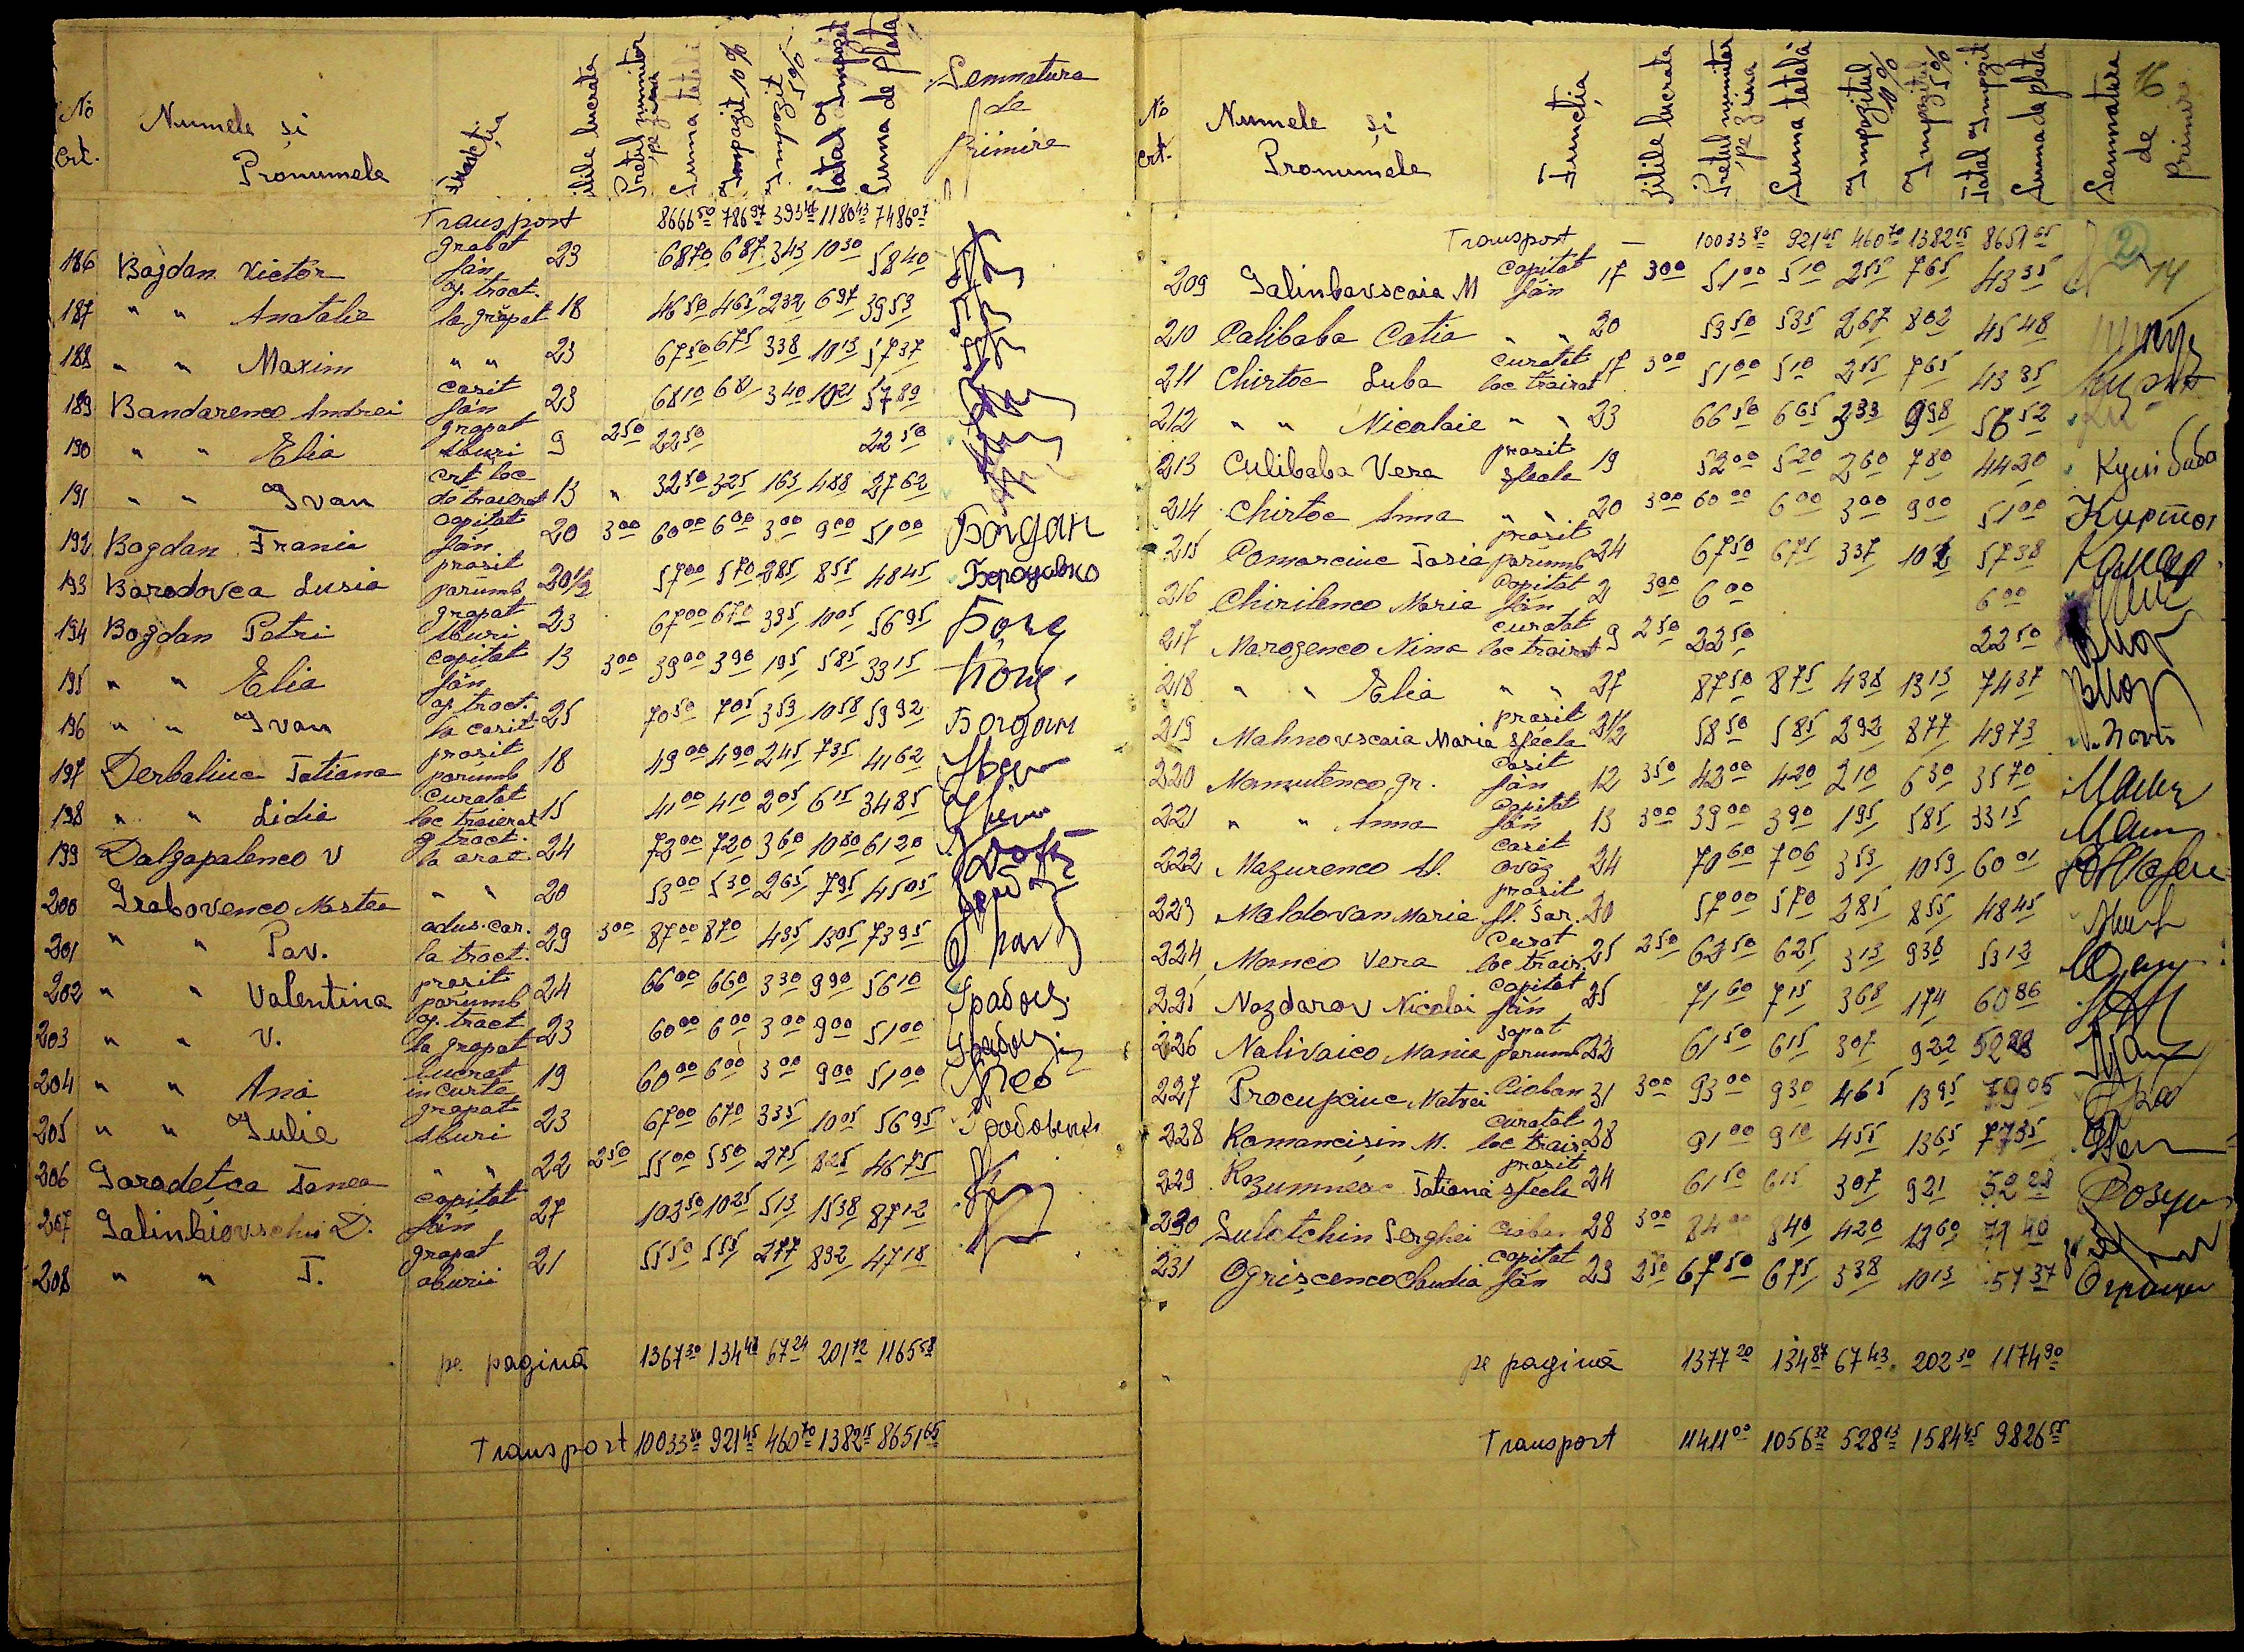 No Crt. Numele și Pronumele Funcția zilele lucrate Prețul muncitor pe zina Suma totală Impozit 10% Impozit 5% Total Impozit Suma de plata Semnatura de primire
Transport 8666 50 786 97 393 46 1180 43 7486 07
186 Bogdan Victor grabat fân 23 68 70 6 87 3 43 10 30 58 40
187 " " Anatolie aj. tract. la grăpat 18 46 50 4 65 2 32 6 97 39 53
188 " " Maxim " " 23 67 50 6 75 3 38 10 13 57 37
189 Bandarenco Andrei cosit fân 23 68 10 6 81 3 40 10 21 57 89
190 " " Elia grapat sburi 9 2 50 22 50 22 50
191 " " Ivan crt. loc de traierat 13 " 32 50 3 25 1 63 4 88 27 62
192 Bogdan Frania copitat fân 20 3 00 60 00 6 00 3 00 9 00 51 00 Богдан
193 Barodovca Lusia prasit porumb 20 1/2 57 00 5 70 2 85 8 55 48 45
194 Bogdan Petri grapat sburi 23 67 00 6 70 3 35 10 05 56 95
195 " " Elia capitat fân 13 3 00 39 00 3 90 1 95 5 85 33 15
196 " " Ivan aj. tract. la cosit 25 70 50 7 05 3 53 10 58 59 92 Богдан
197 Derbaliuc Tatiana prasit porumb 18 49 00 4 90 2 45 7 35 41 62
198 " " Lidia curatat loc traierat 15 41 00 4 10 2 05 6 15 34 85
199 Dalgapalenco V aj. tract. la arat 24 72 00 7 20 3 60 10 80 61 20
200 Grabovenco Nastea " " 20 53 00 5 30 2 65 7 95 45 05
201 " " Pav. adus car. la tract. 29 3 00 87 00 8 70 4 35 13 05 73 95
202 " " Valentina prasit porumb 24 66 00 6 60 3 30 9 90 56 10
203 " " V. aj. tract la grapat 23 60 00 6 00 3 00 9 00 51 00
204 " " Ana lucrat in curte 19 60 00 6 00 3 00 9 00 51 00
205 " " Iulie grapat sburi 23 67 00 6 70 3 35 10 05 56 95
206 Garadețca Tanea " " 22 2 50 55 00 5 50 2 75 8 25 46 75
207 Galinkiovschi D. capitat fân 27 102 50 10 25 5 13 15 38 87 12
208 " " T. grapat sburii 21 55 50 5 55 2 77 8 32 47 18
pe pagină 1367 30 134 48 67 24 201 72 1165 58
Transport 10033 80 921 45 460 70 1382 15 8651 65
No crt. Numele și Pronumele Funcția zilele lucrate Prețul muncitor pe zina Suma totală Impozitul 10% Impozitul 5% Total Impozit Suma de plata Semnatura de primire 16
Transport — 10033 80 921 45 460 70 1382 15 8651 65 2
209 Galinbavscaia M capitat fân 17 3 00 51 00 5 10 2 55 7 65 43 35 14
210 Calibaba Catia " " 20 53 50 5 35 2 67 8 02 45 48
211 Chirtoc Luba curatat loc trairat 17 3 00 51 00 5 10 2 55 7 65 43 35
212 " " Nicolaie " " 23 66 50 6 65 3 33 9 98 56 52
213 Culibaba Vera prasit sfecla 19 52 00 5 20 2 60 7 80 44 20
214 Chirtoc Anna " " 20 3 00 60 00 6 00 3 00 9 00 51 00 Киртог
215 Comarciuc Tasia prasit porumb 24 67 50 6 75 3 37 10 12 57 38
216 Chirilenco Maria capitat fân 2 3 00 6 00 6 00
217 Marozenco Nina curatat loc trairat 9 2 50 22 50 22 50
218 " " Elia " " 27 87 50 8 75 4 38 13 13 74 37
219 Mahnovscaia Maria prasit sfecla 21/2 58 50 5 85 2 92 8 77 49 73
220 Manzutenco gr. cosit fân 12 3 50 42 00 4 20 2 10 6 30 35 70
221 " " Anna capitat fân 13 3 00 39 00 3 90 1 95 5 85 33 15
222 Mazurenco M. cosit ovăz 24 70 60 7 06 3 53 10 59 60 01
223 Maldovan Maria prasit fl. Sar. 20 57 00 5 70 2 85 8 55 48 45
224 Manco Vera Curat loc trair. 25 2 50 62 50 6 25 3 13 9 38 53 12
225 Nazdarov Nicolai capitat fân 25 71 60 7 15 3 68 1 74 60 86
226 Nalivaico Mania sapat porumb 22 61 50 6 15 3 07 9 22 52 28
227 Procupciuc Matvei Cioban 31 3 00 93 00 9 30 4 65 13 95 79 05
228 Romancișin M. curatat loc trair. 28 91 00 9 10 4 55 13 65 77 35
229 Razumneac Tatiana prasit sfecla 24 61 50 6 15 3 07 9 21 52 28
230 Sulotchin Serghei cioban 28 3 00 84 00 8 40 4 20 12 60 71 40
231 Ogrișcenco Claudia capitat fân 23 2 50 67 50 6 75 3 38 10 13 57 37
pe pagină 1377 20 134 87 67 43 202 30 1174 90
Transport 11411 00 1056 32 528 13 1584 45 9826 55